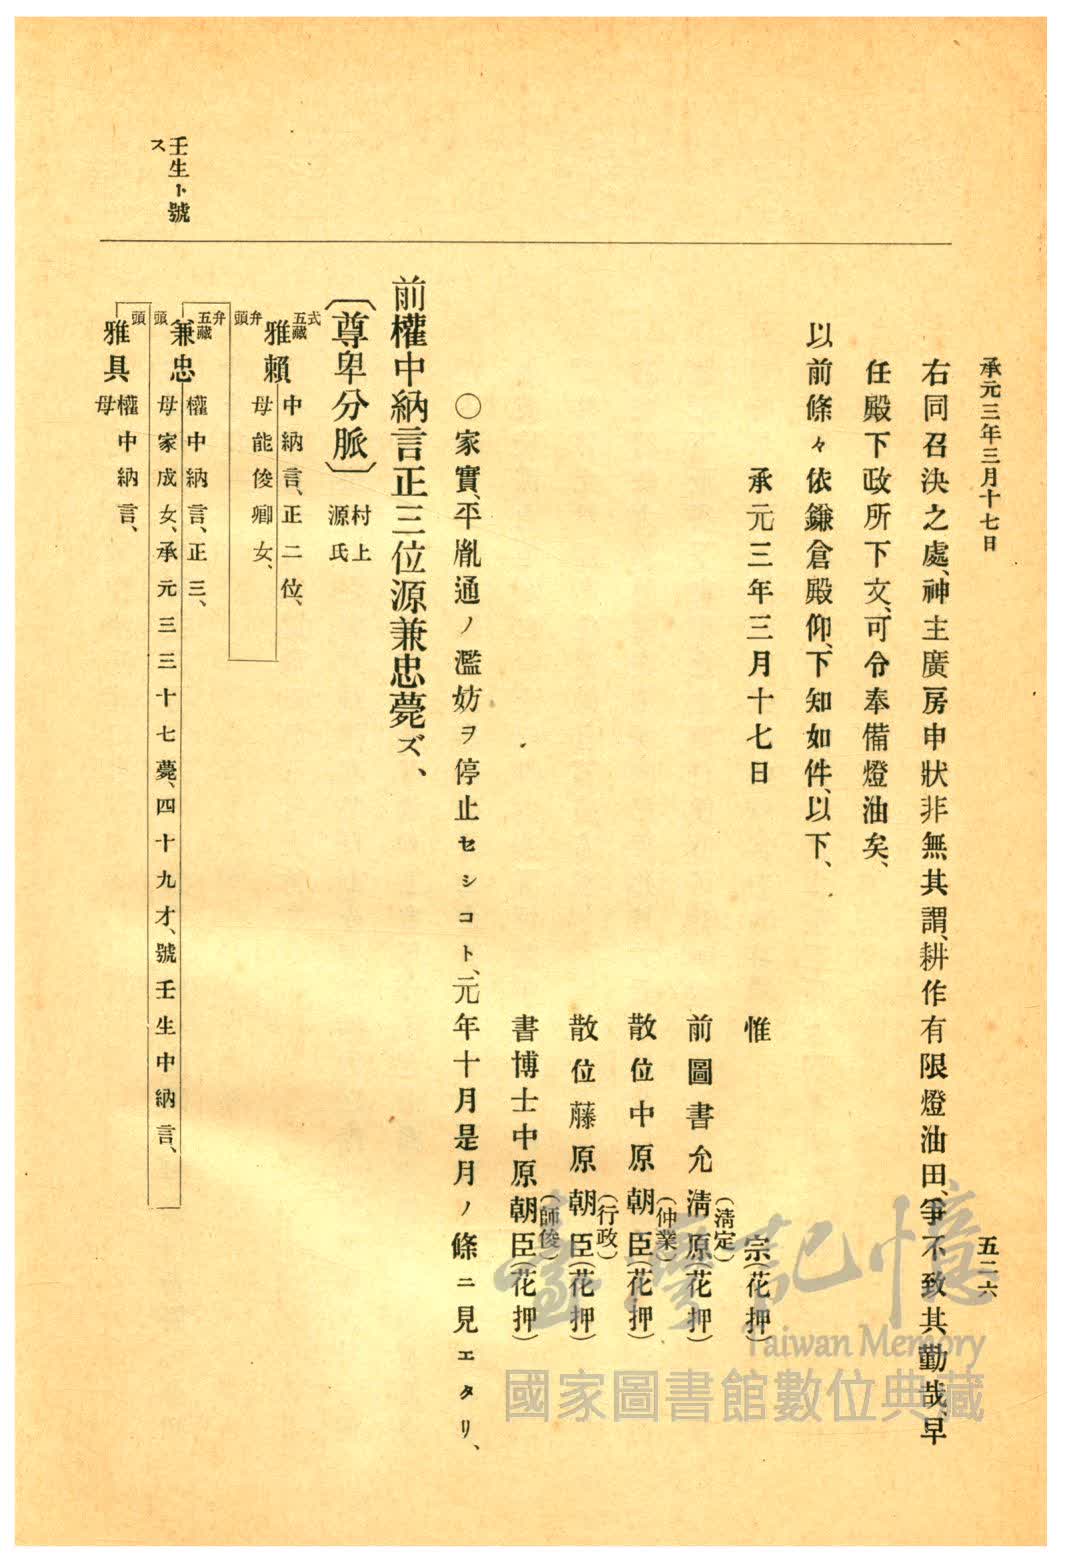 承元三年三月十七日
五二六
右同召決之處、神主廣房申狀非無其謂、耕作有限燈油田、爭不致其勤哉、早
任殿下政所下文、可令奉備燈油矣、
以前條々依鎌倉殿仰、下知如件、以下、
承元三年三月十七日
惟宗(花押)
前圖書允淸原(花押)
(淸定)
散位中原朝臣(花押)
(仲業)
散位藤原朝臣(花押)
(行政)
書博士中原朝臣(花押)
(師俊)
○家實、平胤通ノ濫妨ヲ停止セシコト、元年十月是月ノ條ニ見エタリ、
前權中納言正三位源兼忠薨ズ、
〔尊卑分脈〕村上
源氏
壬生ト號
ス
弍
五藏
雅賴
中納言、正二位、
母能俊卿女、
弁
頭
弁
五藏
頭
兼忠
權中納言、正三、
母家成女、承元三三十七薨、四十九才、號壬生中納言、
頭
雅具
權中納言、
母
臺灣記憶
Taiwan Memory
國家圖書館數位典藏